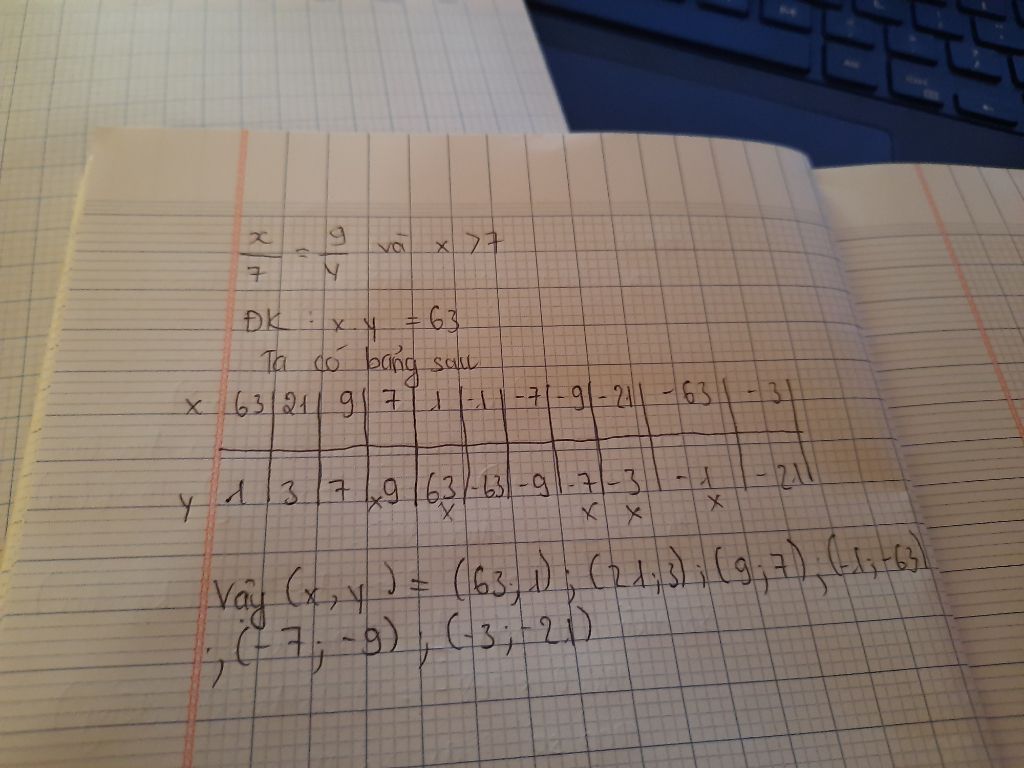 x/7 = 9/y và x > 7
ĐK : x y = 63
Ta có bảng sau
x 63 21 9 7 1 -1 -7 -9 -21 -63 -3
y 1 3 7 9 63 -63 -9 -7 -3 -1 -21
x x x x x
Vậy (x, y) = (63; 1); (21; 3); (9; 7), (-1; -63)
; (-7; -9), (-3; -21)